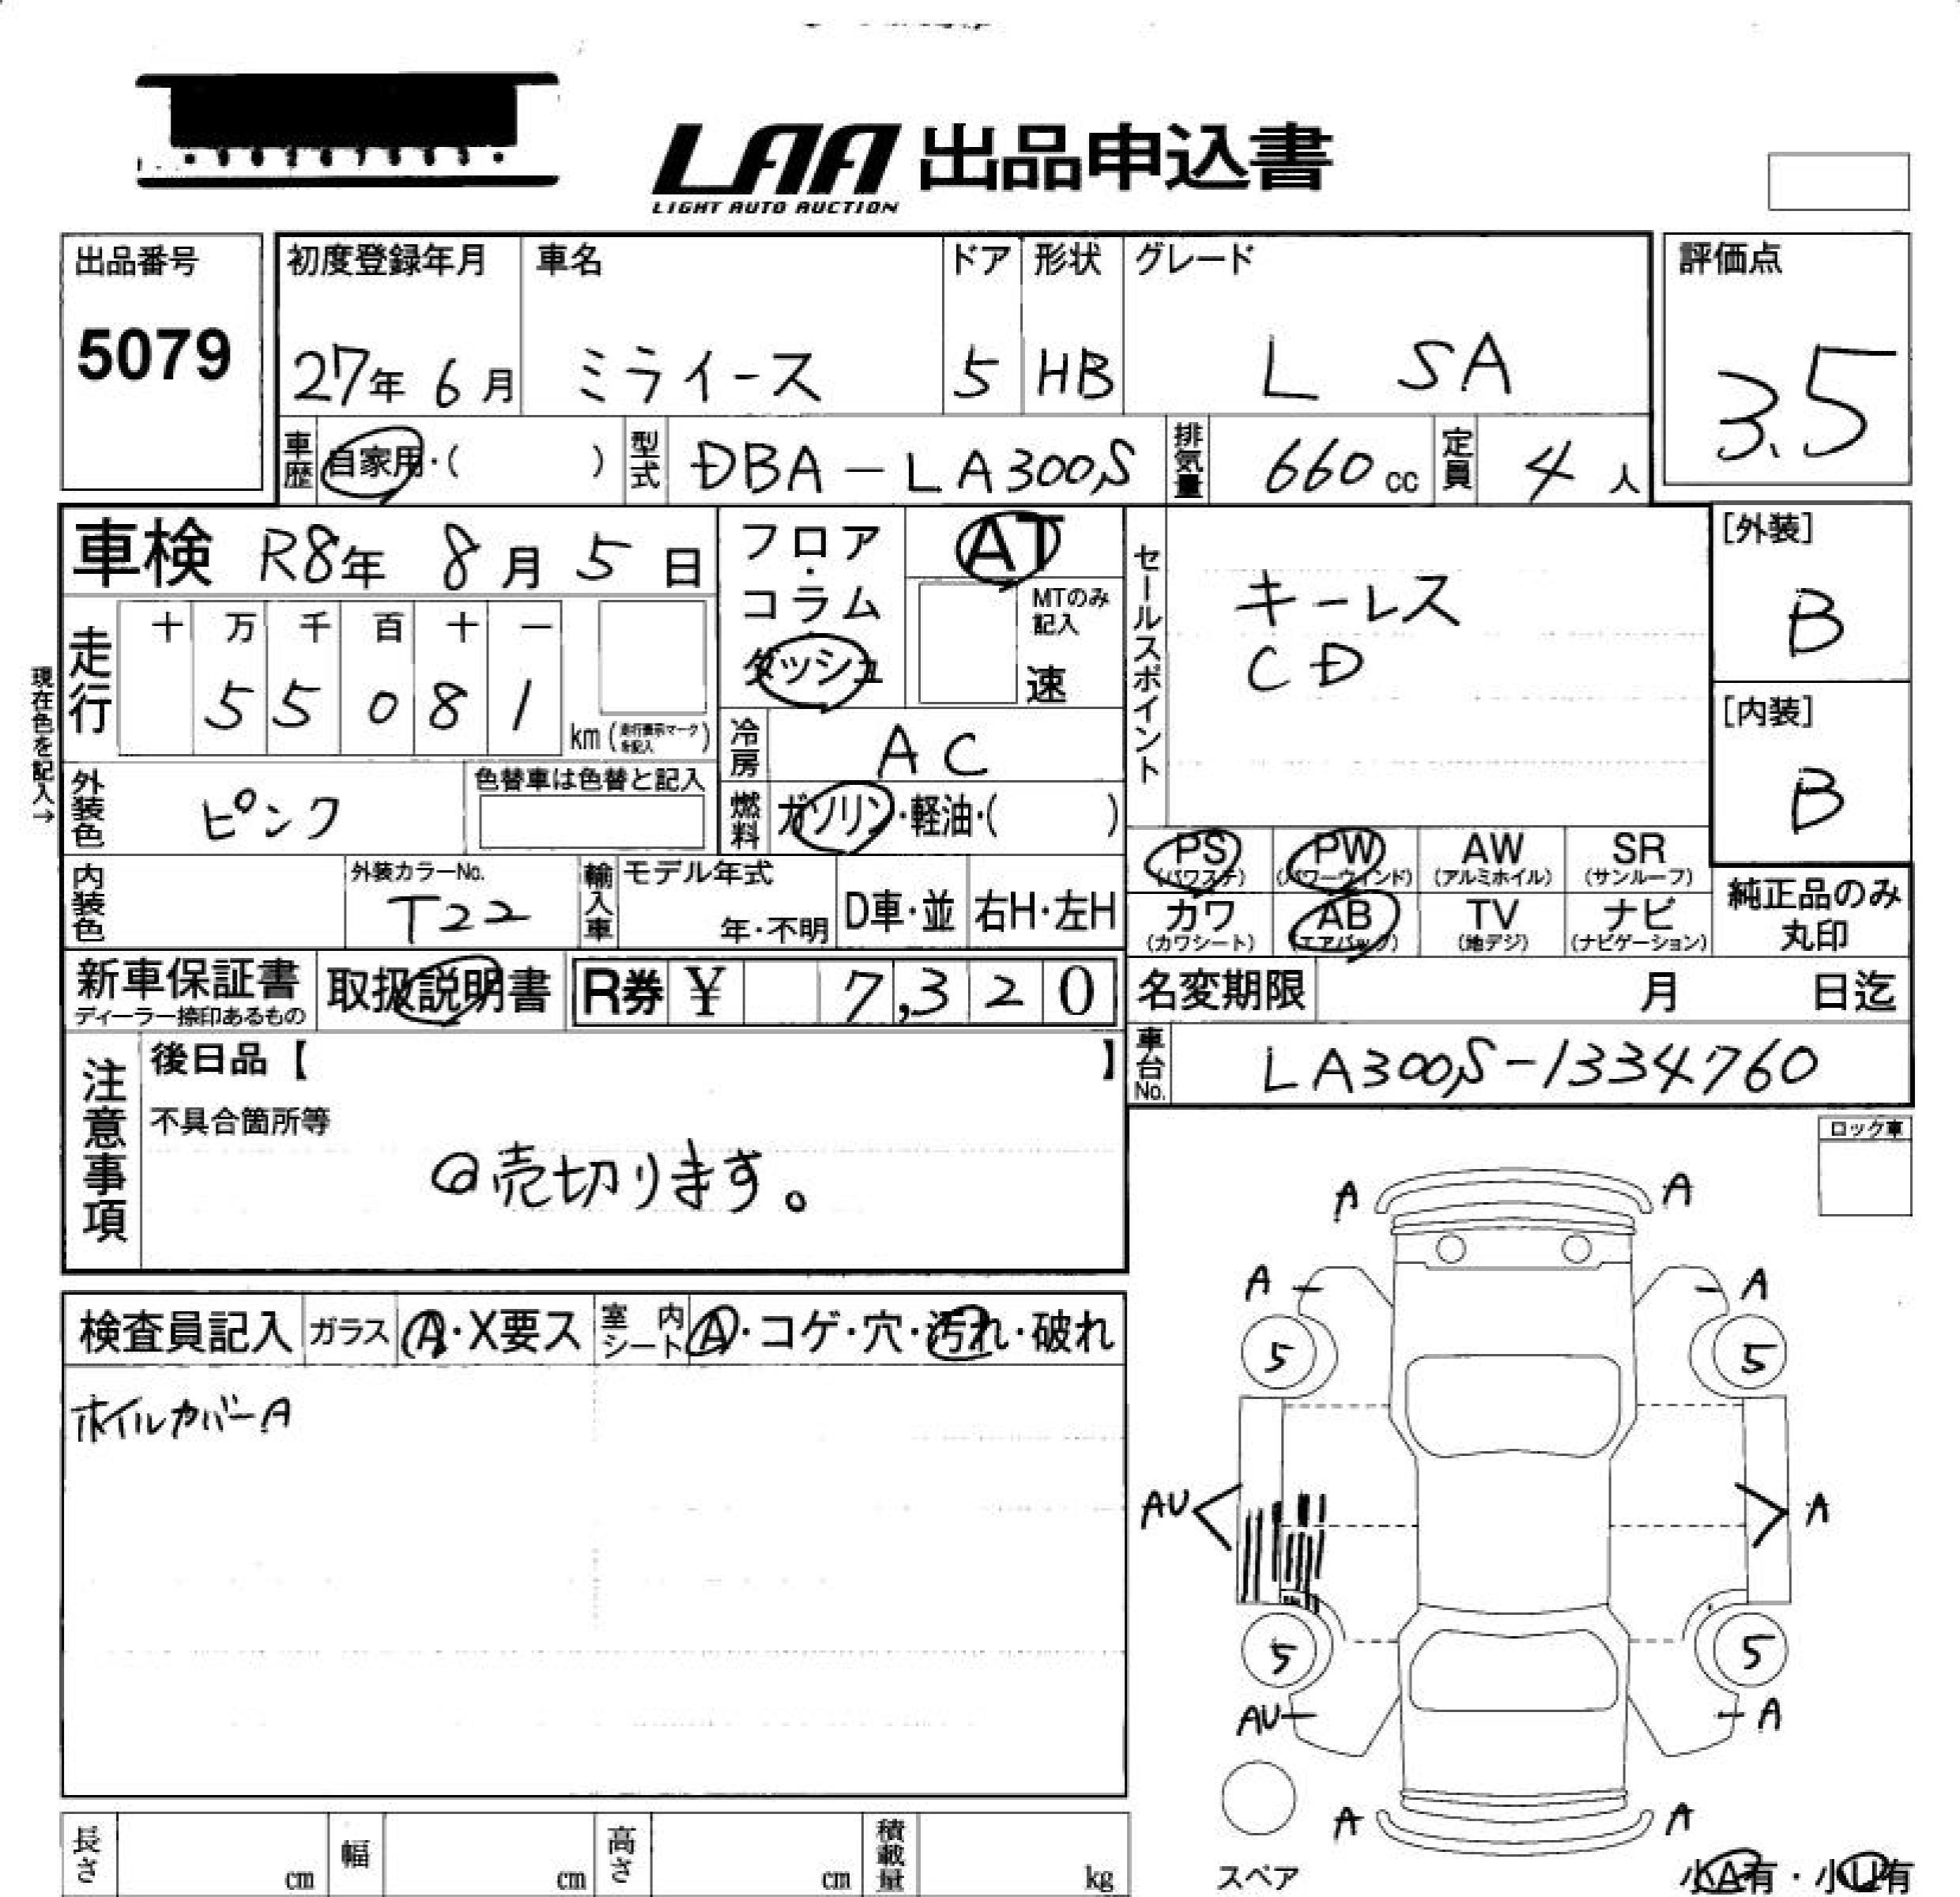 LAA 出品申込書
LIGHT AUTO AUCTION
出品番号
5079
初度登録年月
27年 6月
車名
ミライース
ドア
5
形状
HB
グレード
L SA
評価点
3.5
車歴 自家用・( )
型式 DBA-LA300S
排気量 660cc
定員 4人
車検 R8年 8月 5日
フロア・コラム・ダッシュ
AT
MTのみ記入
速
セールスポイント
キーレス
CD
[外装]
B
[内装]
B
現在色を記入→
走行
十 万 千 百 十 一
5 5 0 8 1
km (走行表示マークを記入)
冷房 AC
外装色 ピンク
色替車は色替と記入
燃料 ガソリン・軽油・( )
PS (パワステ)
PW (パワーウィンド)
AW (アルミホイル)
SR (サンルーフ)
カワ (カワシート)
AB (エアバッグ)
TV (地デジ)
ナビ (ナビゲーション)
純正品のみ丸印
内装色
外装カラーNo.
T22
輸入車
モデル年式
年・不明
D車・並
右H・左H
新車保証書
ディーラー捺印あるもの
取扱説明書
R券 ¥ 7,320
名変期限 月 日迄
車台No. LA300S-1334760
注意事項
後日品【 】
不具合箇所等
@売切ります。
ロック車
検査員記入
ガラス A・X要ス
室内シート A・コゲ・穴・汚れ・破れ
ホイルカバーA
A A
A A
5 5
AU A
5 5
AU A
A A
スペア
小A有・小U有
長さ cm
幅 cm
高さ cm
積載量 kg